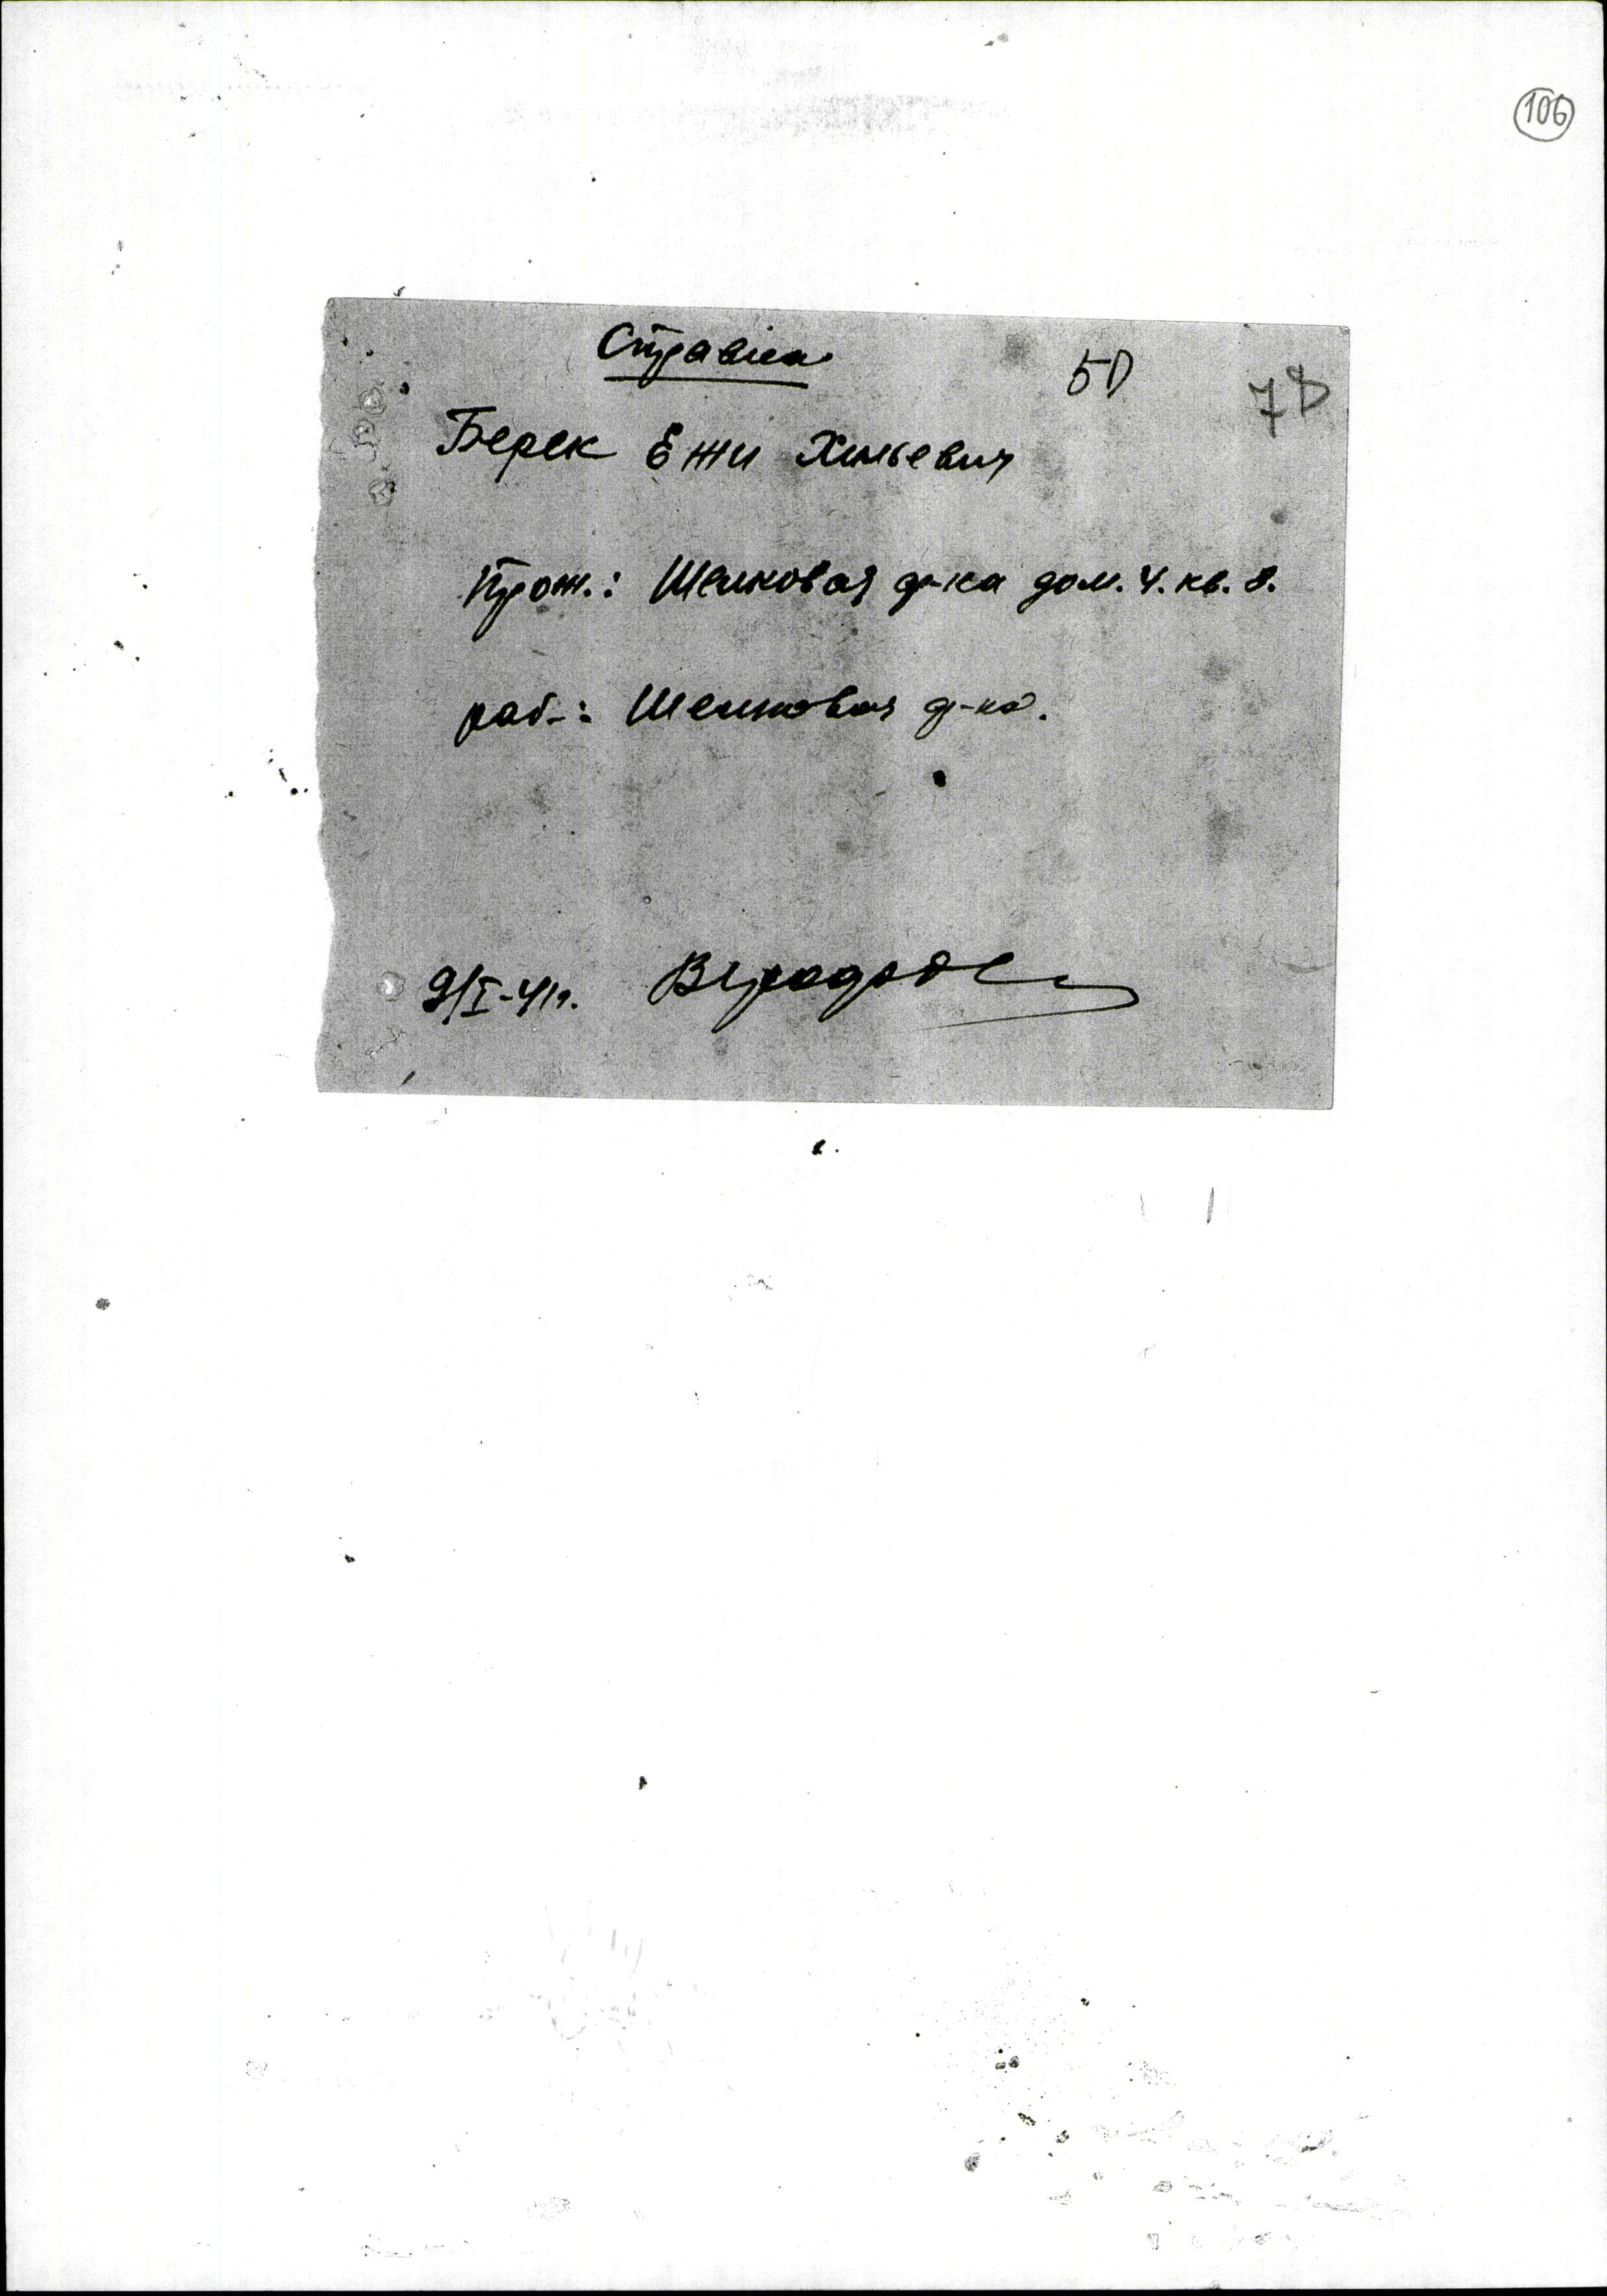 106
Справка
50
78
Берек Ежи Хильевич
Прож.: Шелковая ф-ка дом. 4. кв. 8.
раб.: Шелковая ф-ка.
9/I-41г.